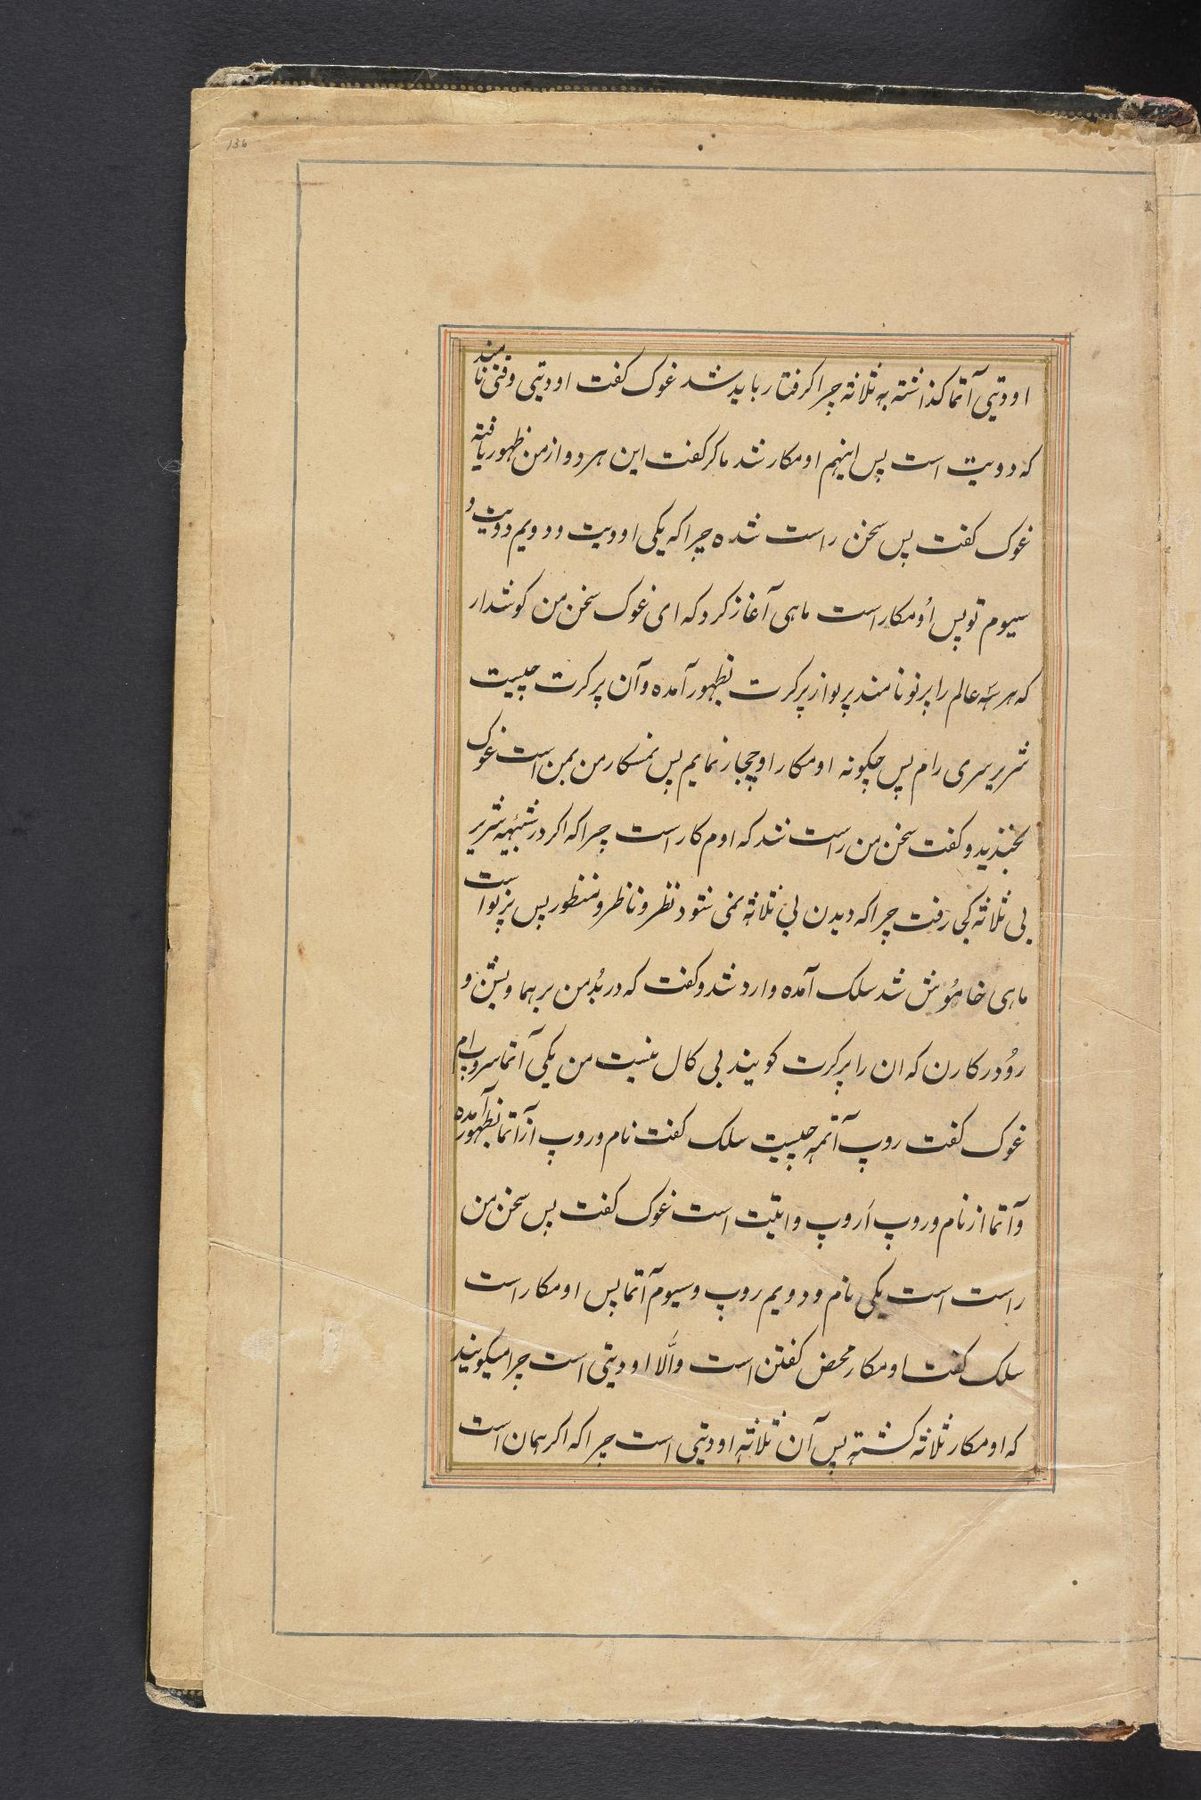 136
اودیتی آتما کذاشته به ثلاثه چرا کرفتار باید شد غوک کفت اودیتی وقتی نامند
که دویت است پس اینهم اومکار شد ماکر کفت این هر دو از من ظهور یافته
غوک کفت پس سخن راست شده چرا که یکی اودیت و دویم دویت و
سیوم تو پس اُومکار است ماهی آغاز کرد که ای غوک سخن من کوشدار
که هر سه عالم را پرنو نامند پرنو از پرکرت بظهور آمده و آن پرکرت چیست
شریر سری رام پس چکونه اومکار اوچار نمایم پس نمسکار من بمن است غوک
بخندید و کفت سخن من راست شد که اوم کار است چرا که اکر در شبیهه شریر
بی ثلاثه کی رفت چرا که دیدن بی ثلاثه نمی شود نظر و ناظر و منظور پس پرنو است
ماهی خاموُش شد سلک آمده وارد شد و کفت که در بُد من برهما و بشن و
روُدر کارن که ان را پرکرت کویند بی کال نیست من یکی آتما سروپ ام
غوک کفت روپ آتمه چیست سلک کفت نام و روپ از آتما بظهور آمده
و آتما از نام و روپ اَروپ و انیت است غوک کفت پس سخن من
راست است یکی نام و دویم روپ و سیوم آتما پس اومکار است
سلک کفت اومکار محض کفتن است واّلا اودیتی است چرا میکویند
که اومکار ثلاثه کشته پس آن ثلاثه اودیتی است چرا که اکر همان است